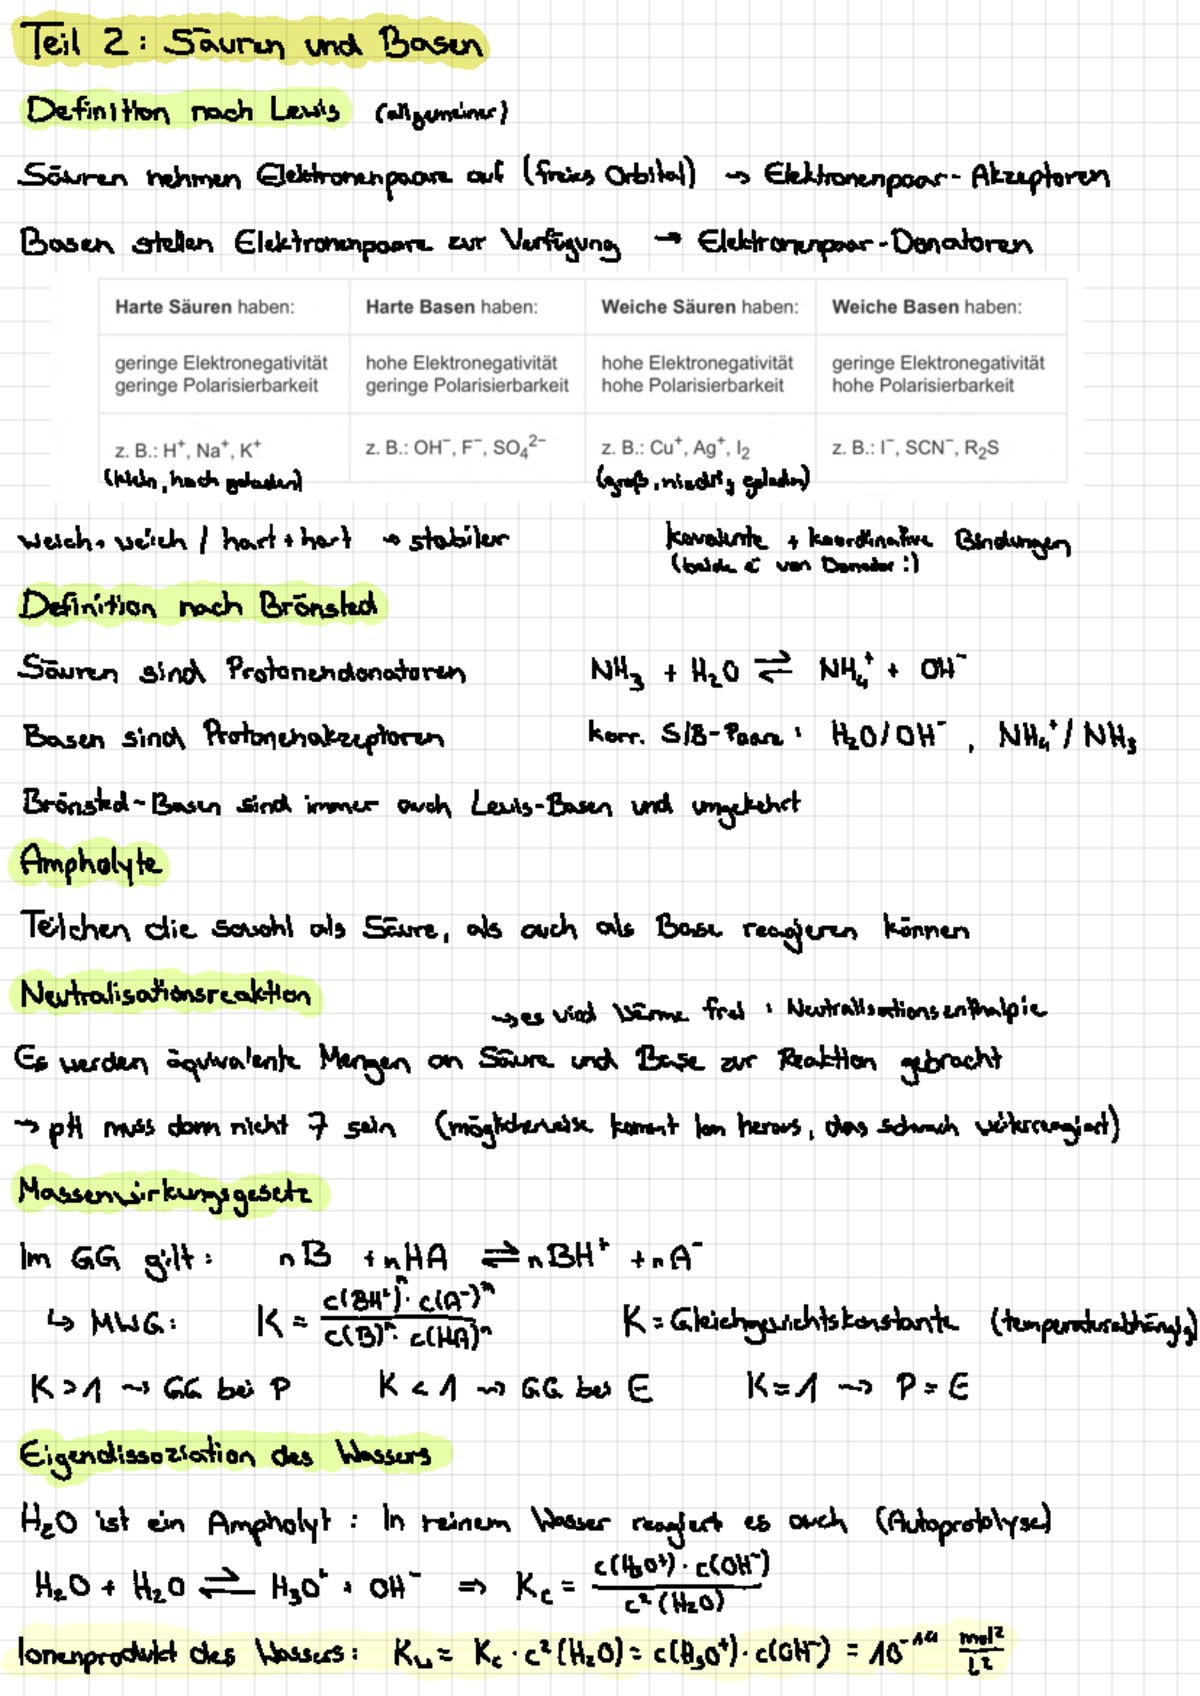 Teil 2: Säuren und Basen
Definition nach Lewis (allgemeiner)
Säuren nehmen Elektronenpaare auf (freies Orbital) → Elektronenpaar-Akzeptoren
Basen stellen Elektronenpaare zur Verfügung → Elektronenpaar-Donatoren
Harte Säuren haben: Harte Basen haben: Weiche Säuren haben: Weiche Basen haben:
geringe Elektronegativität hohe Elektronegativität hohe Elektronegativität geringe Elektronegativität
geringe Polarisierbarkeit geringe Polarisierbarkeit hohe Polarisierbarkeit hohe Polarisierbarkeit
z. B.: H⁺, Na⁺, K⁺ z. B.: OH⁻, F⁻, SO₄²⁻ z. B.: Cu⁺, Ag⁺, I₂ z. B.: I⁻, SCN⁻, R₂S
(klein, hoch geladen) (groß, niedrig geladen)
weich + weich / hart + hart → stabiler kovalente + koordinative Bindungen
(beide e⁻ von Donator :)
Definition nach Brönsted
Säuren sind Protonendonatoren NH₃ + H₂O ⇌ NH₄⁺ + OH⁻
Basen sind Protonenakzeptoren korr. S/B-Paare: H₂O/OH⁻, NH₄⁺/NH₃
Brönsted-Basen sind immer auch Lewis-Basen und umgekehrt
Ampholyte
Teilchen die sowohl als Säure, als auch als Base reagieren können
Neutralisationsreaktion
→ es wird Wärme frei: Neutralisationsenthalpie
Es werden äquivalente Mengen an Säure und Base zur Reaktion gebracht
→ pH muss dann nicht 7 sein (möglicherweise kommt Ion heraus, das schwach weiterreagiert)
Massenwirkungsgesetz
Im GG gilt: nB + nHA ⇌ nBH⁺ + nA⁻
↳ MWG: K = c(BH⁺)ⁿ · c(A⁻)ⁿ / c(B)ⁿ · c(HA)ⁿ K = Gleichgewichtskonstante (temperaturabhängig)
K > 1 → GG bei P K < 1 → GG bei E K = 1 → P = E
Eigendissoziation des Wassers
H₂O ist ein Ampholyt: In reinem Wasser reagiert es auch (Autoprotolyse)
H₂O + H₂O ⇌ H₃O⁺ + OH⁻ ⇒ K_c = c(H₃O⁺) · c(OH⁻) / c²(H₂O)
Ionenprodukt des Wassers: K_w = K_c · c²(H₂O) = c(H₃O⁺) · c(OH⁻) = 10⁻¹⁴ mol²/L²